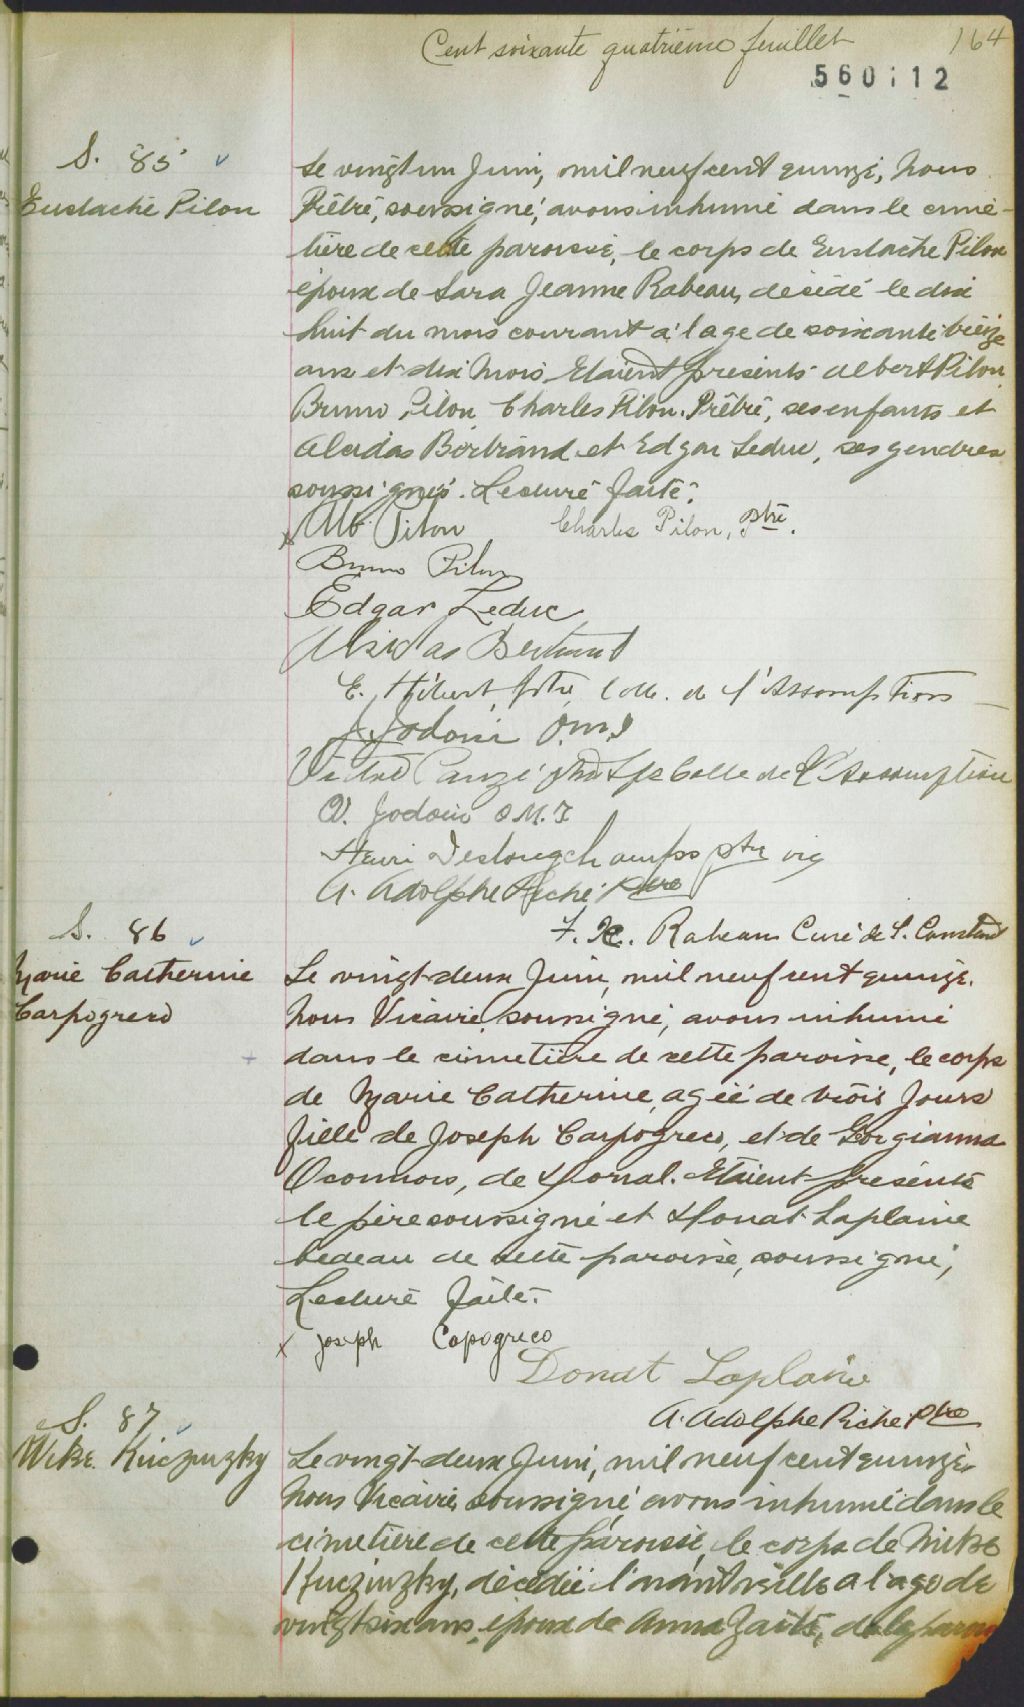 Cent soixante quatrième feuillet 164
560112
S. 85
Eustache Pilon
Le vingt un Juin, mil neuf cent quinze, Nous
Prêtre, soussigné, avons inhumé dans le cime-
tière de cette paroisse, le corps de Eustache Pilon
époux de Sara Jeanne Rabeau, décédé le dix
huit du mois courant à l'age de soixante treize
ans et dix mois Etaient présents Albert Pilon
Bruno Pilon Charles Pilon. Prêtre, ses enfants et
Alcidas Bertrand et Edgar Leduc, ses gendres
soussignés. Lecture faite.
x Alb Pilon Charles Pilon, ptre.
Bruno Pilon
Edgar Leduc
Alcidas Bertrand
E. Hébert, ptre, Coll. de l'Assomption
J. Jodoin O.M.I
Pauzé ptre Coll de L'Assomption
V. Jodoin O.M.I
Henri Deslongchamps ptre vic
A. Adolphe Riché ptre
F. X. Rabeau Curé de S. Constant
S. 86
Marie Catherine
Carpogreco
Le vingt-deux Juin, mil neuf cent quinze.
Nous Vicaire, soussigné, avons inhumé
dans le cimetière de cette paroisse, le corps
de Marie Catherine, agée de trois Jours
fille de Joseph Carpogreco, et de Gorgianna
Oconnors, de Dorval. Etaient présents
le père soussigné et Donat Laplaine
bedeau de cette paroisse, soussigné,
Lecture faite.
x Joseph Capogreco
Donat Laplaine
A. Adolphe Riché ptre
S. 87
Mike Kuczinzky
Le vingt-deux Juin, mil neuf cent quinze,
Nous Vicaire, soussigné, avons inhumé dans le
cimetière de cette paroisse, le corps de Mike
Kuczinzky, décédé l'avant veille a l'age de
vingt six ans, époux de Anna de la